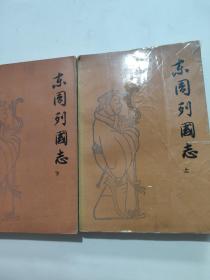 东周列國志
下
东周列國志
上